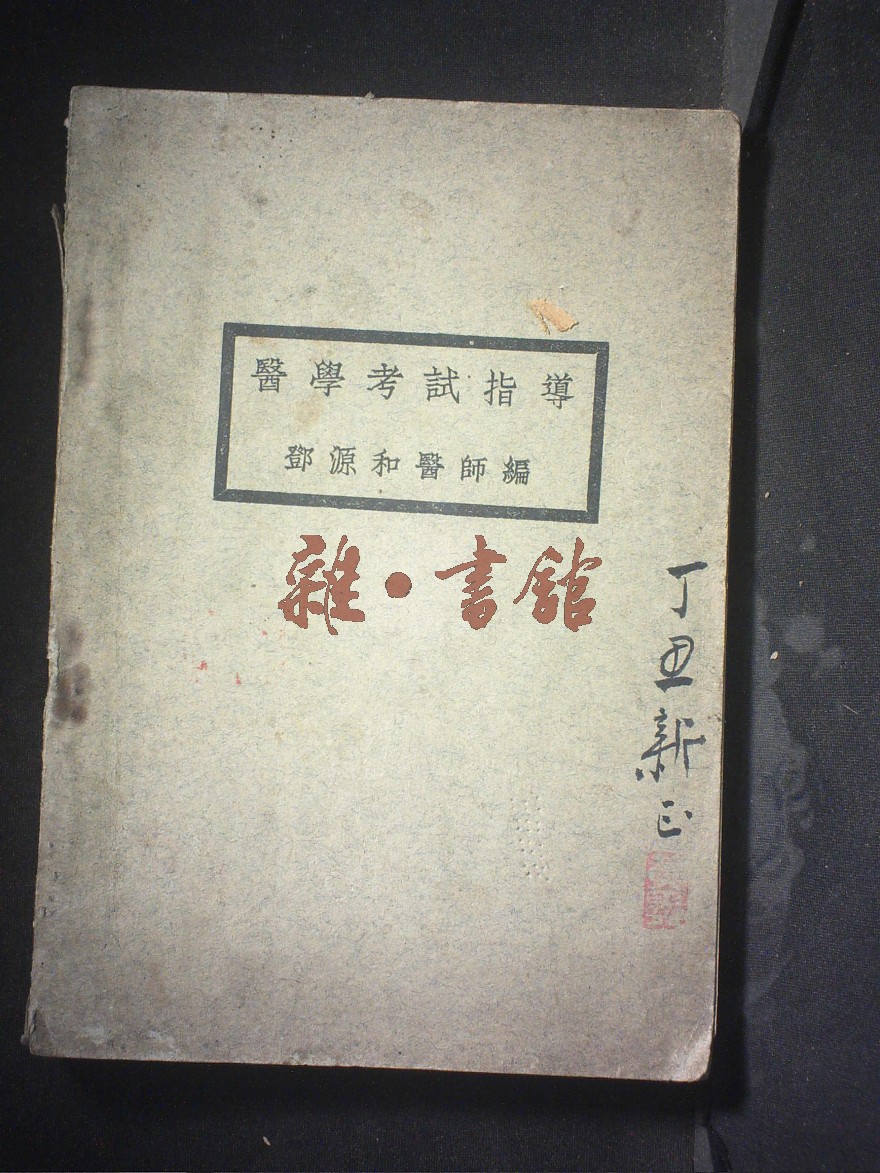 醫學考試指導
鄧源和醫師編
雜·書館
丁丑新正